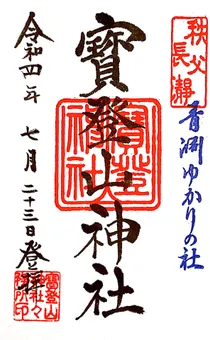 秩父
長瀞
青淵ゆかりの社
寳登山神社
寳登山社
令和四年 七月 二十三日 登拝